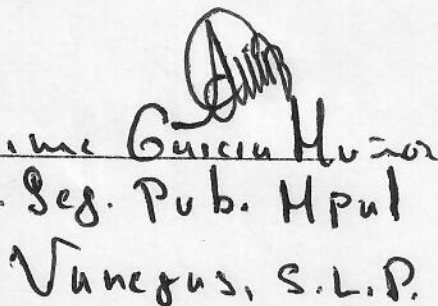 Garcia Muñoz
. Seg. Pub. Mpal
Vanegas, S.L.P.